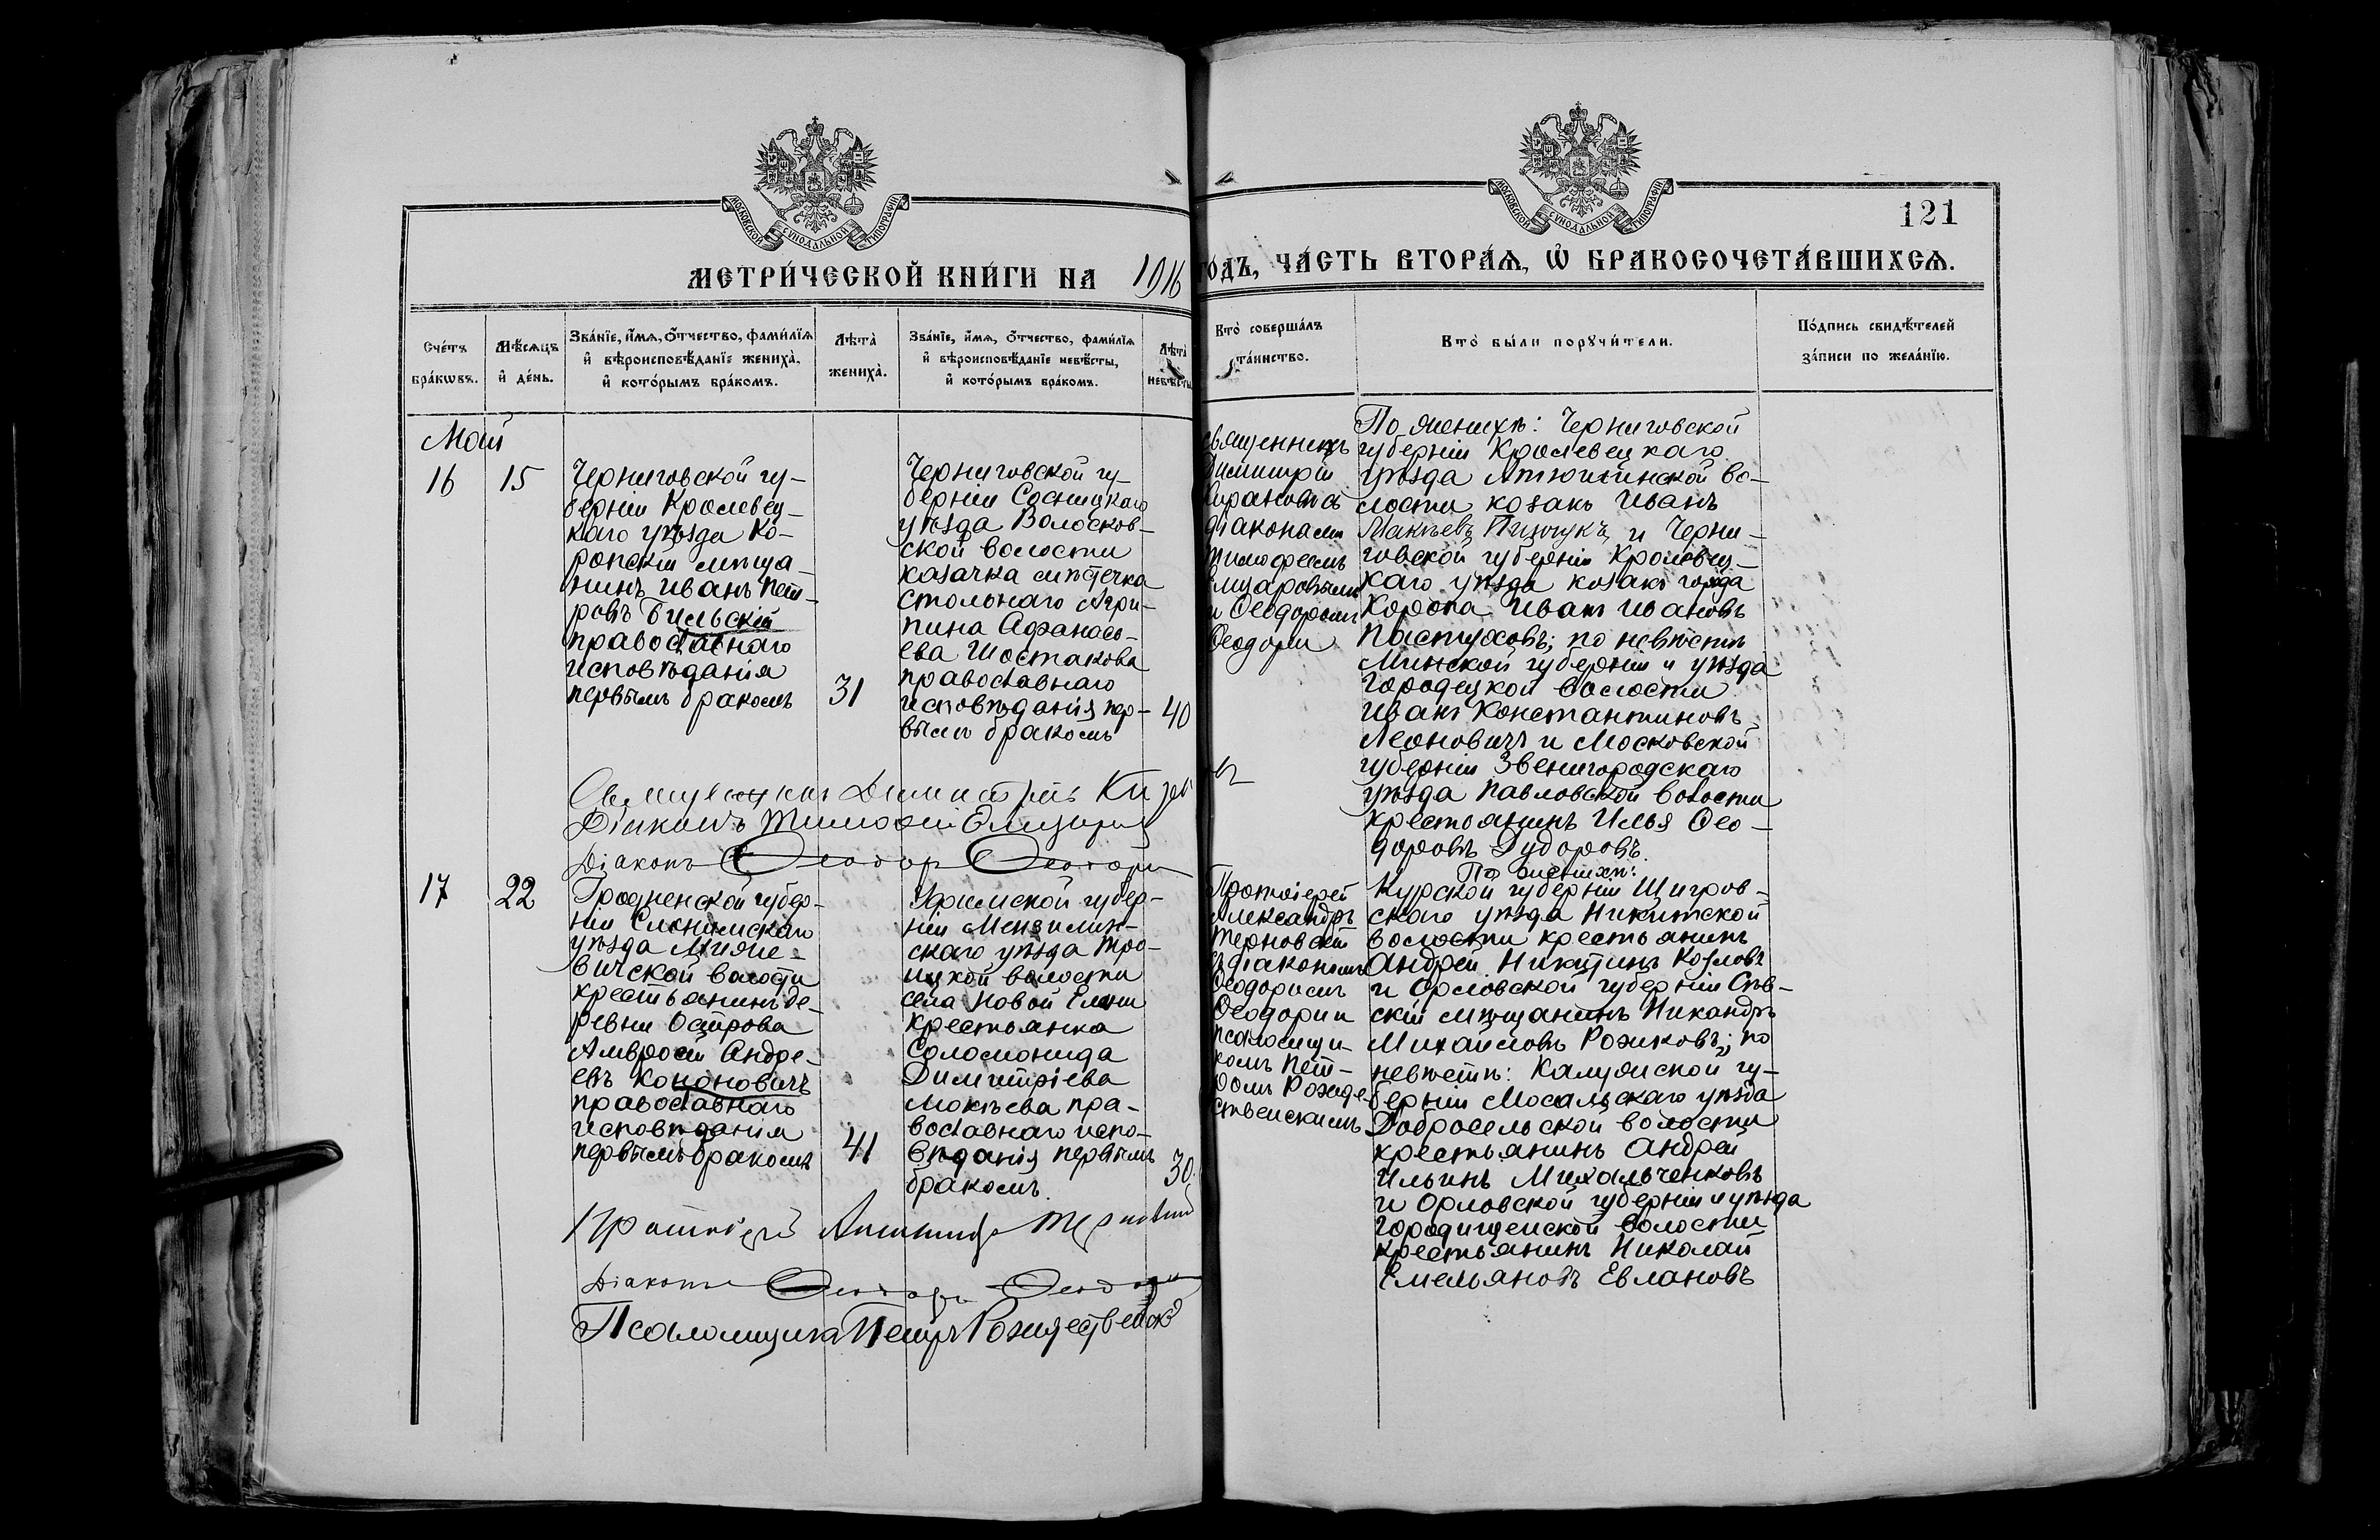 МОСКОВСКОЙ СѴНОДАЛЬНОЙ ТИПОГРАФІИ
МОСКОВСКОЙ СѴНОДАЛЬНОЙ ТИПОГРАФІИ
121
МЕТРИ́ЧЕСКОЙ КНИ́ГИ НА 1916
ГОДЪ, ЧА́СТЬ ВТОРА́Я, Ѡ҆ БРАКОСОЧЕТА́ВШИХСЯ.
Сче́тъ
бра́кѡвъ.
Мѣ́сяцъ
и҆ де́нь.
Зва́нїе, и҆́мя, ѻ҆́тчество, фами́лїя
и҆ вѣроисповѣ́данїе жениха̀,
и҆ кото́рымъ бра́комъ.
Лѣ́та̀
жениха̀.
Зва́нїе, и҆́мя, ѻ҆́тчество, фами́лїя
и҆ вѣроисповѣ́данїе невѣ́сты,
и҆ кото́рымъ бра́комъ.
Лѣ́та̀
невѣ́сты
Кто̀ соверша́лъ
та́инство.
Кто̀ бы́ли порꙋчи́тели.
По́дпись свидѣ́телей
за́писи по жела́нїю.
Май
16
15
Черниговской гу-
берніи Кролевец-
каго уѣзда Ко-
ропскій мѣща-
нинъ Иванъ Пет-
ровъ Бильскій
православнаго
исповѣданія
первымъ бракомъ
31
Черниговской гу-
берніи Сосницкаго
уѣзда Волосков-
ской волости
казачка мѣстечка
Стольнаго Агри-
пина Афанась-
ева Шостакова
православнаго
исповѣданія пер-
вымъ бракомъ
40
Священникъ
Димитрій
діаконами
Тимофеемъ
Елизаровымъ
и Ѳеодоромъ
Ѳеодори
По женихѣ: Черниговской
губерніи Кролевецкаго
уѣзда Атюшинской во-
лости козакъ Иванъ
Макѣевъ и Черни-
говской губерніи Кролевец-
каго уѣзда козакъ города
Коропа Иванъ Ивановъ
Пастуховъ; по невѣстѣ
Минской губерніи и уѣзда
Городецкой волости
Иванъ Константиновъ
Леоновичъ и Московской
губерніи Звенигородскаго
уѣзда Павловской волости
крестьянинъ Илья Ѳео-
доровъ Дудоровъ.
Священникъ Димитрій
Діаконъ Тимофей Елизаров
Діаконъ Ѳеодоръ Ѳеодори
17
22
Гродненской губер-
ніи Слонимскаго
уѣзда Миже-
вичской волости
крестьянинъ де-
ревни Острова
Амвросій Андре-
евъ Кононовичъ
православнаго
исповѣданія
первымъ бракомъ
41
Уфимской губер-
ніи Мензелин-
скаго уѣзда Тро-
ицкой волости
села Новой Елани
крестьянка
Соломонида
Димитріева
Мокѣева пра-
вославнаго испо-
вѣданія первымъ
бракомъ.
30.
Протоіерей
Александръ
Терновскій
съ діакономъ
Ѳеодоромъ
Ѳеодори и
псаломщи-
комъ Пет-
ромъ Рожде-
ственскимъ
По женихѣ:
Курской губерніи Щигров-
скаго уѣзда Никитской
волости крестьянинъ
Андрей Никитинъ Козловъ
и Орловской губерніи Сѣв-
скій мѣщанинъ Никандръ
Михайловъ Рожковъ; по
невѣстѣ: Калужской гу-
берніи Мосальскаго уѣзда
Добросельской волости
крестьянинъ Андрей
Ильинъ Михальченковъ
и Орловской губерніи и уѣзда
Городищенской волости
крестьянинъ Николай
Емельяновъ Евлановъ
Протоіерей Александръ Терновскій
Діаконъ Ѳеодоръ Ѳеодори
Псаломщикъ Петръ Рождественск